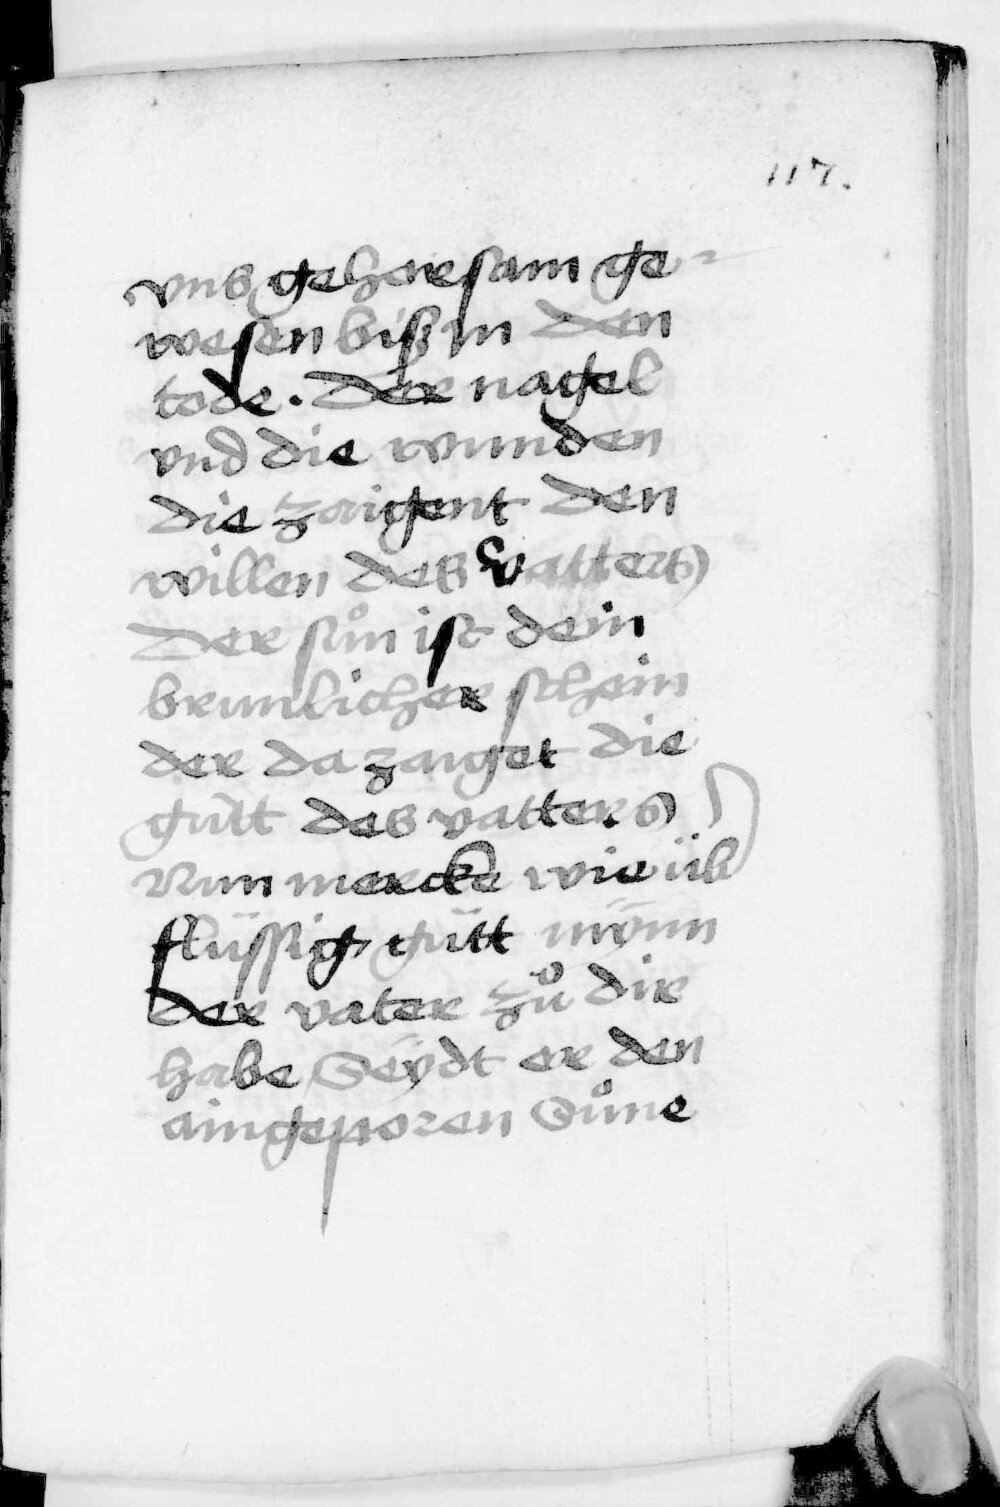 117.
vns gehorsam ge-
wesen biß in den
tode. Der nagel
vnd die wunden
die zaigent den
willen des vatters
Der sůn ist dein
brunlicher schein
der da zaiget die
gütt des vatters
Nun mercke wie üb
flüssig gütt mÿnn
der vater zů dir
habe Seÿdt er den
aingeporen Sůne